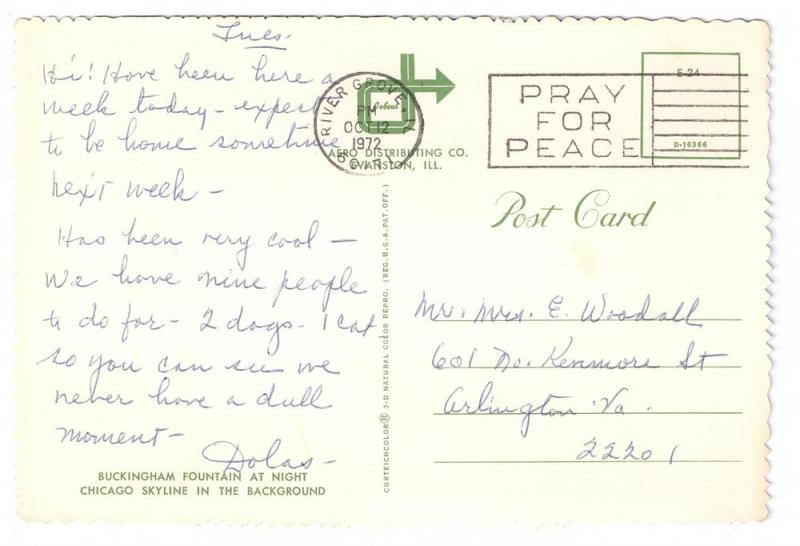 Tues.
Hi! Have been here a
week today - expect
to be home sometime
next week -
Has been very cool -
We have nine people
to do for - 2 dogs - 1 cat
so you can see we
never have a dull
moment -
Dolas -
BUCKINGHAM FOUNTAIN AT NIGHT
CHICAGO SKYLINE IN THE BACKGROUND
RIVER GROVE
PM
OCT 12
1972
AERO DISTRIBUTING CO.
EVANSTON, ILL.
PRAY
FOR
PEACE
E-24
D-16366
Post Card
CURTEICHCOLOR® 3-D NATURAL COLOR REPRO. (REG. U.S.A. PAT. OFF.)
Mr. Mrs. E. Woodall
601 No. Kenmore St
Arlington Va.
22201